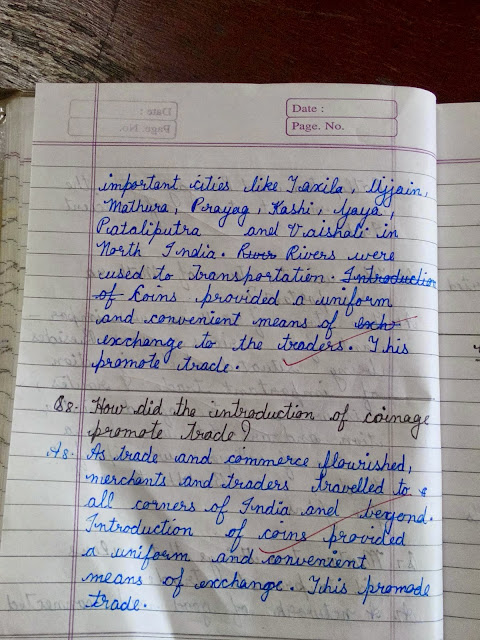 Date :
Page. No.
important cities like Taxila, Ujjain,
Mathura, Prayag, Kashi, Gaya,
Pataliputra and Vaishali in
North India. Rivers were
used to transportation. Introduction
of Coins provided a uniform
and convenient means of exch
exchange to the traders. This
promote trade.
Q8. How did the introduction of coinage
promote trade?
A8. As trade and commerce flourished,
merchants and traders travelled to
all corners of India and beyond.
Introduction of coins provided
a uniform and convenient
means of exchange. This promode
trade.